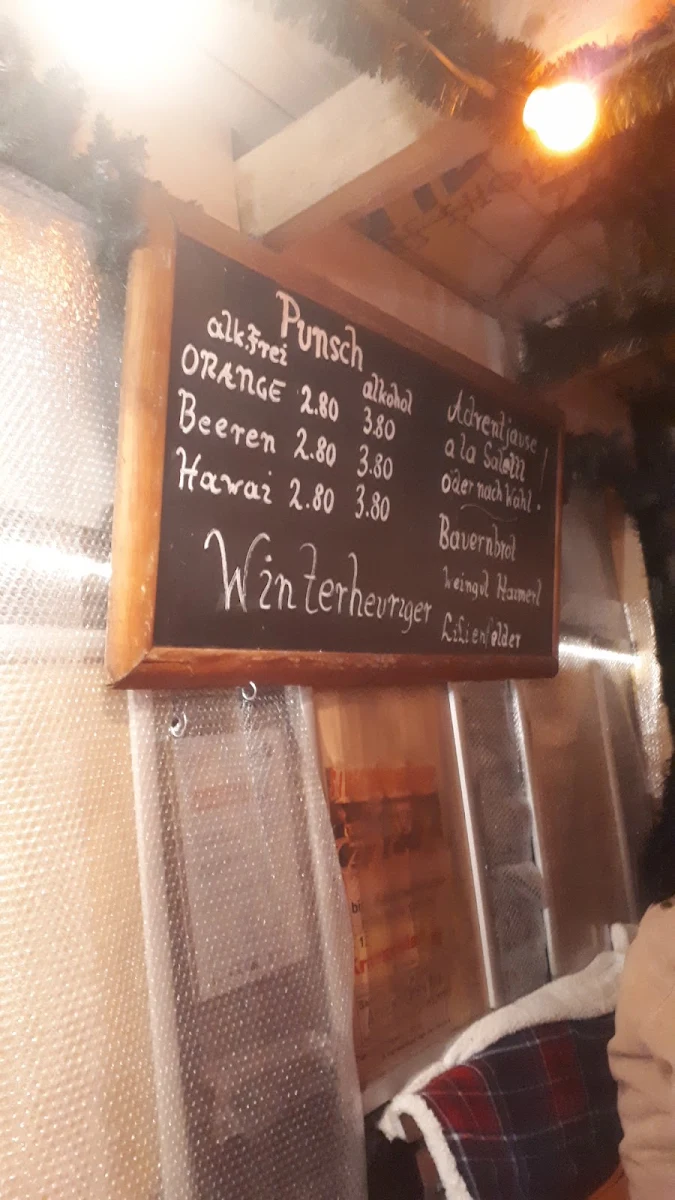 Punsch
alkFrei alkohol
ORANGE 2.80 3.80
Beeren 2.80 3.80
Hawai 2.80 3.80
Winterheuriger
Adventjause
a la Salem !
oder nach Wahl.
Bauernbrot
Weingut Hamerl
Lilienfelder